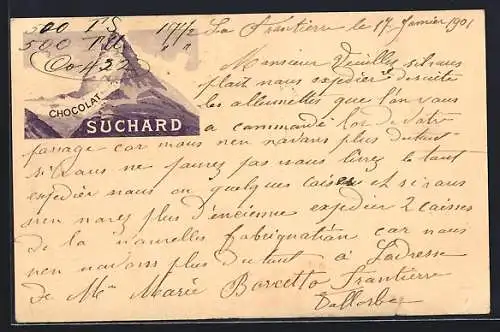 500
500
La Frantiere le 17 Janvier 1901
Monsieur Veuillez sil vous
plait nous expedier de suite
CHOCOLAT
les allumettes que l'on vous
SUCHARD
a commandé lor de votre
passage car nous nen navons plus du tout
si vous ne pouvez pas nous livrez le tout
expedier nous en quelques caises et si vous
nen navez plus d'encienne expedier 2 caisses
de la nouvelles fabriquation car nous
nen navons plus du tout à Ladresse
de Mme Marie Borcetto Frantiere
Vallorbe